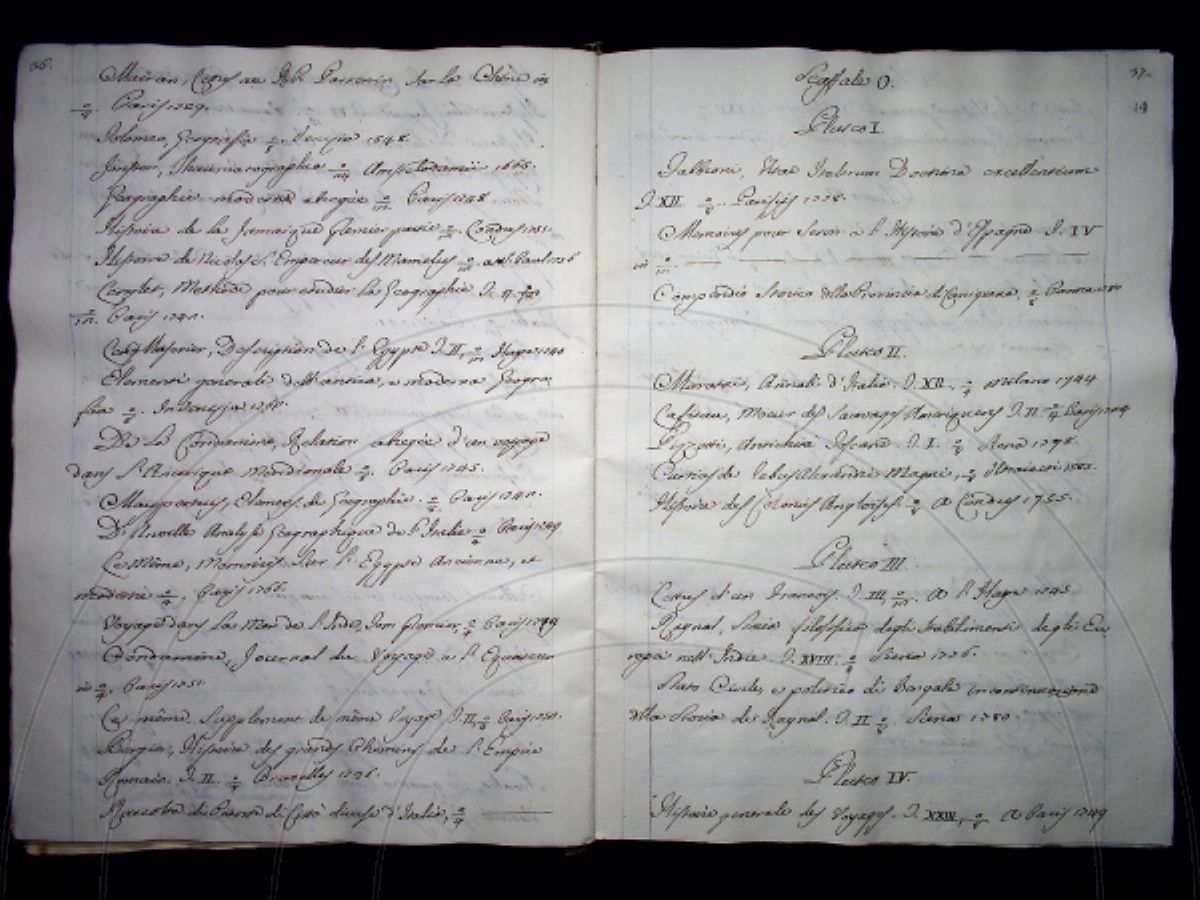 36.
Mairan, Lettres au R.P. Parrenin sur la Chine in
8. Paris 1759.
Tolomeo, Geografia 8. Venezia 1548.
Geographie moderne abregée 12 Paris 1748
Histoire de la Jamaique premier partie 12 Londres 1751.
Histoire de Nicolas I. Empereur des Mamelus 8. a St. Paul 1756
Lenglet, Methode pour etudier la Geographie T. II.
12. Paris 1740.
Description de l'Egypte T. II, 12 Haye 1740
Elementi generali dell'antica, e moderna Geogra-
fia 8. In Venezia
De la Condamine, Relation abregée d'un voyage
dans l'Amerique Meridionale 8. Paris 1745.
Maupertuis, Elemens de Geographie. 8 Paris 1740.
D'Anville Analyse Geographique de l'Italie 4 Paris 1749
Le Même, Memoires sur l'Egypte Ancienne, et
moderne 4. Paris 1766.
Voyage dans la Mer de l'Inde, 4 Paris 1779
Condamine, Journal du Voyage a l'Equateur
in 4. Paris 1751
Les même. Supplement de même Voyage T. II, 4 Paris
Bergier, Histoire des grands Chemins de l'Empire
Romain. T. II. 4 Bruxelles 1736.
Raccolta di Piante di Città diverse d'Italia, 4
37.
19
Scaffale O.
Pluteo I.
Fabroni, Vitae Italorum Doctrina excellentium
T. XII 8. Pisis 1778.
Memoires pour servir a l'Histoire d'Espagne T. IV
in 12.
Compendio storico della Provincia di Lunigiana, 8
Pluteo II.
Muratori, Annali d'Italia. T. XII. 4 Milano 1744
Lafiteau, Moeurs des Sauvages Ameriquens T. II 4 Paris 1724
Antichità Toscane. T. I. 4 Siena 1778.
Curtius de rebus Alexandri Magni, 4
Histoire des Colonies Angloises. 8 a Londres 1755.
Pluteo III.
Lettres d'un Francois. T. III, 12. a l'Haye 1745
Raynal, Storia filosofica degli stabilimenti degli Eu-
ropei nell'Indie. T. XVIII. 8 Siena 1776.
Stato Civile, e politico di Bengala in continuazione
della Storia di Raynal. T. II 8. Siena 1780.
Pluteo IV.
Histoire generale des Voyages. T. XXIII, 4 a Paris 1749